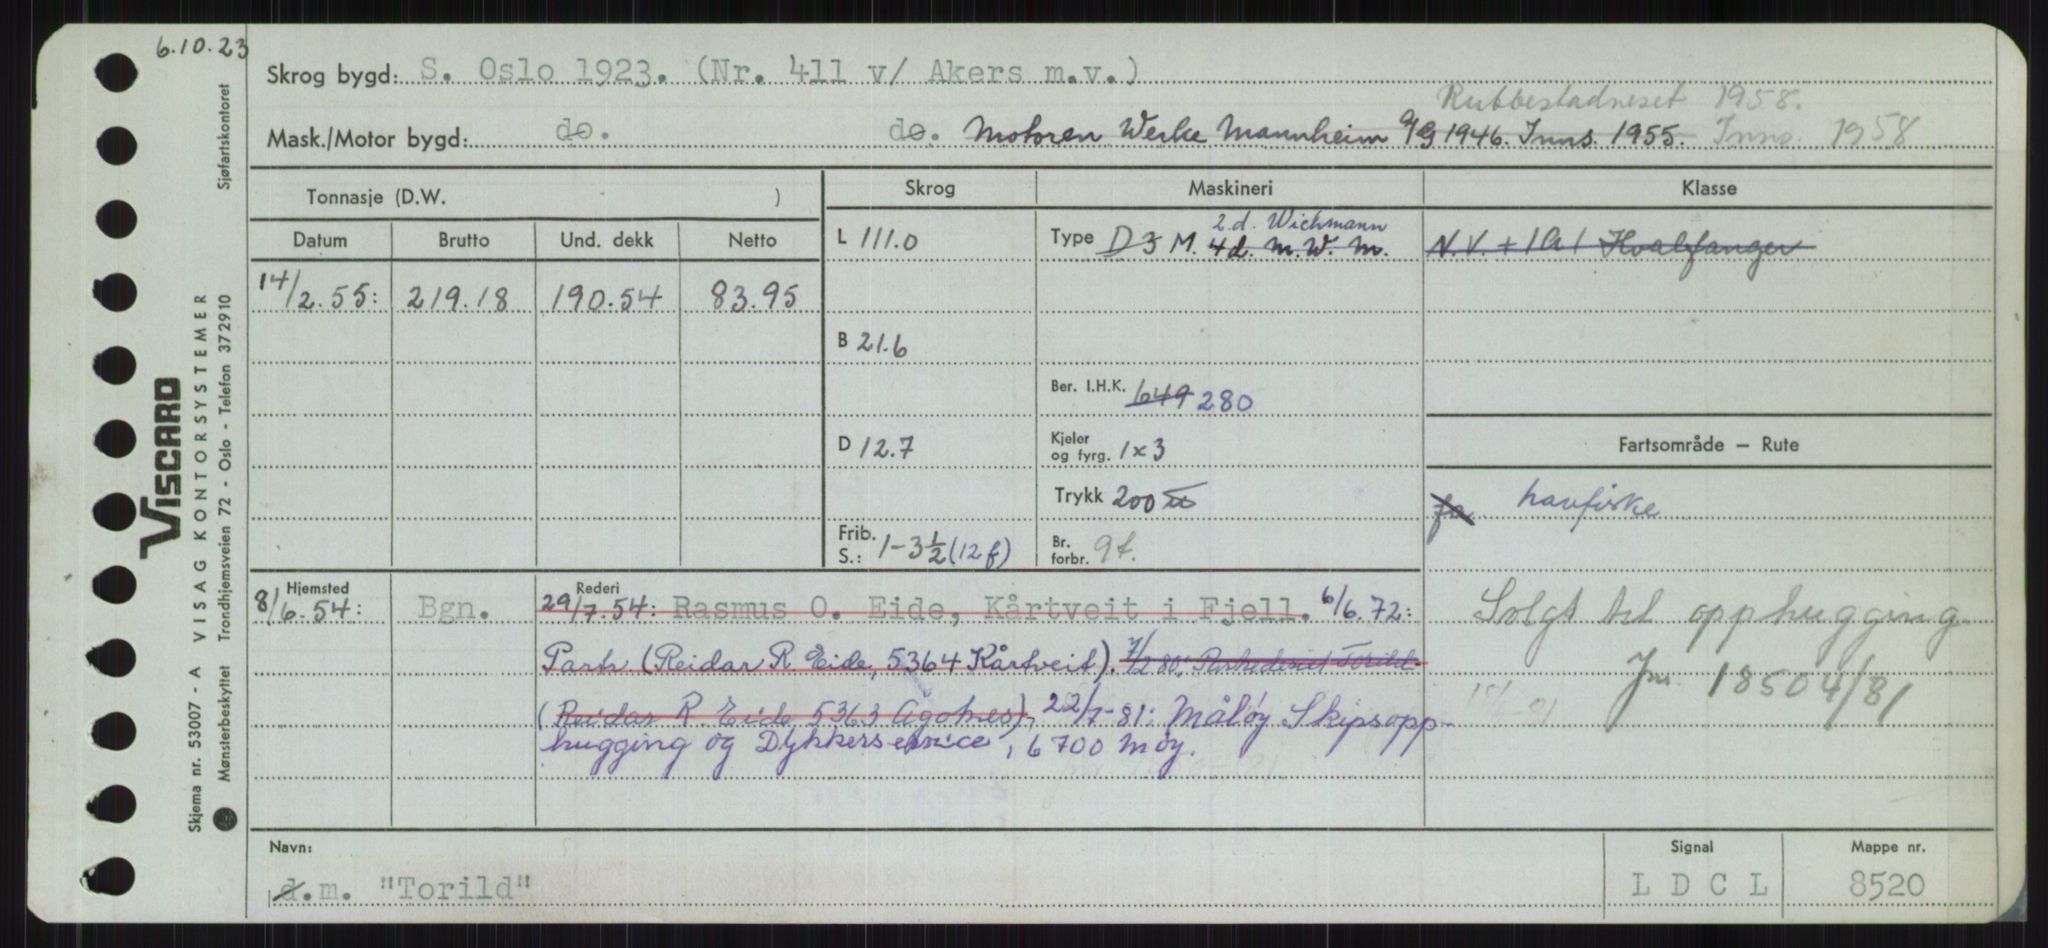 6.10.23
Skrog bygd: S. Oslo 1923. (Nr. 411 v/ Akers m.v.)
Rubbestadneset 1958.
Mask./Motor bygd: do. do. Motoren Werke Mannheim A/G 1946. Inns. 1955. Inns. 1958
Tonnasje (D.W. )
Skrog Maskineri Klasse
Datum Brutto Und. dekk Netto
14/2.55: 219.18 190.54 83.95
L 111.0
B 21.6
D 12.7
Frib. S.: 1-3½ (12 f)
2 d. Wichmann
Type D 3 M. 4 d. M.W.M.
Ber. I.H.K. 649 280
Kjeler og fyrg. 1x3
Trykk 200
Br. forbr. 9 t.
N.V. + 1A1 Hvalfanger
Fartsområde – Rute
havfiske
Solgt til opphugging
Jnr. 18504/81
Hjemsted
8/6.54: Bgn.
Rederi
29/7.54: Rasmus O. Eide, Kårtveit i Fjell. 6/6.72:
Partr. (Reidar R. Eide, 5364 Kårtveit). 7/2 80: Partrederiet Torild
(Reidar R. Eide 5363 Ågotnes), 22/7-81: Måløy Skipsopp-
hugging og Dykkerservice, 6700 Måløy.
Navn: d.m. "Torild"
Signal
L D C L
Mappe nr.
8520
VISCARD
VISAG KONTORSYSTEMER
Skjema nr. 53007 - A
Mønsterbeskyttet Trondhjemsveien 72 - Oslo - Telefon 372910 Sjøfartskontoret